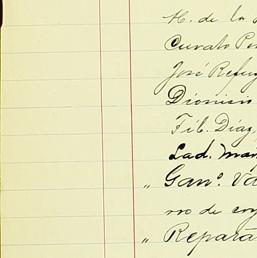 H. de la
José Refug
Dionisio
Fil. Díaz,
Lad. Mar
" Gan°. Va
no de eng
" Repara